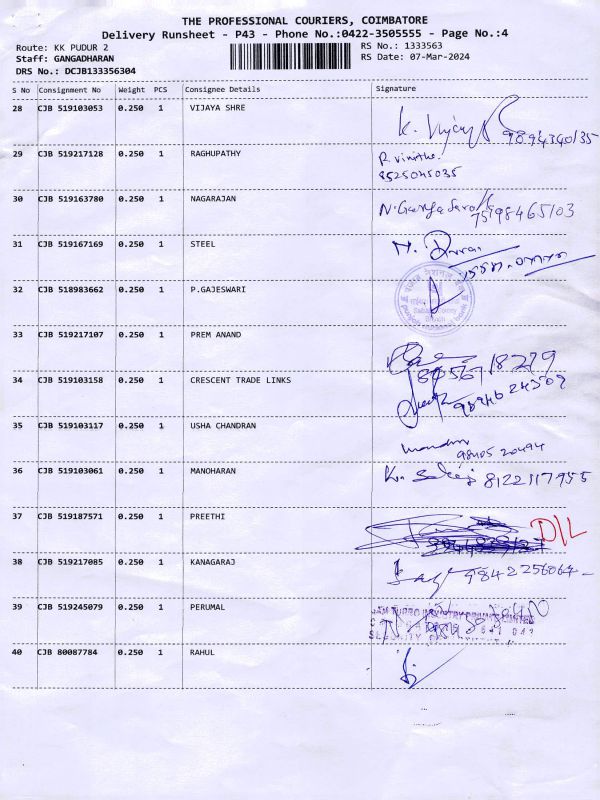 THE PROFESSIONAL COURIERS, COIMBATORE
Delivery Runsheet - P43 - Phone No.:0422-3505555 - Page No.:4
Route: KK PUDUR 2
RS No.: 1333563
Staff: GANGADHARAN
RS Date: 07-Mar-2024
DRS No.: DCJB133356304
S No Consignment No Weight PCS Consignee Details Signature
28 CJB 519103053 0.250 1 VIJAYA SHRE
9894340135
29 CJB 519217128 0.250 1 RAGHUPATHY
8525045035
30 CJB 519163780 0.250 1 NAGARAJAN
7598465103
31 CJB 519167169 0.250 1 STEEL
32 CJB 518983662 0.250 1 P.GAJESWARI
33 CJB 519217107 0.250 1 PREM ANAND
8056718279
34 CJB 519103158 0.250 1 CRESCENT TRADE LINKS
9894624309
35 CJB 519103117 0.250 1 USHA CHANDRAN
98405 20494
36 CJB 519103061 0.250 1 MANOHARAN
8122117955
37 CJB 519187571 0.250 1 PREETHI
D/L
38 CJB 519217085 0.250 1 KANAGARAJ
9842256064
39 CJB 519245079 0.250 1 PERUMAL
40 CJB 80087784 0.250 1 RAHUL